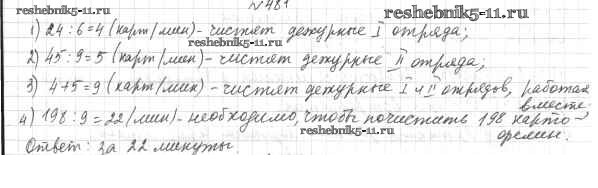 №481
reshebnik5-11.ru
1) 24 : 6 = 4 (карт/мин) - чистят дежурные I отряда;
reshebnik5-11.ru
2) 45 : 9 = 5 (карт/мин) - чистят дежурные II отряда;
3) 4+5=9 (карт/мин) - чистят дежурные I и II отрядов, работая
вместе.
4) 198 : 9 = 22 (мин) - необходимо, чтобы почистить 198 карто-
reshebnik5-11.ru
фелин.
Ответ: за 22 минуты.
reshebnik5-11.ru